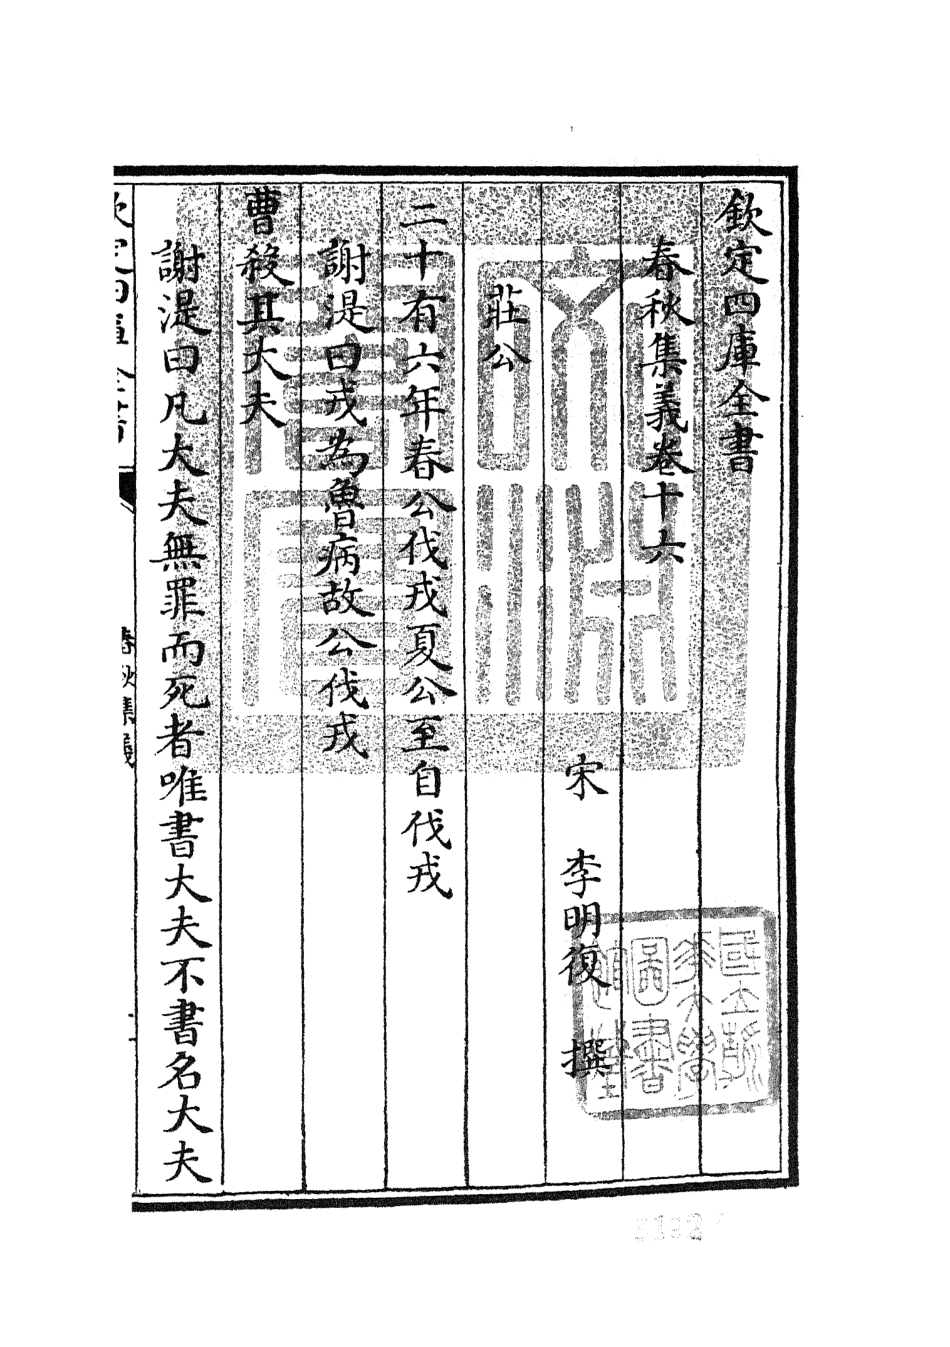 欽定四庫全書
春秋集義卷十六
宋　李明復　撰
莊公
二十有六年春公伐戎夏公至自伐戎
謝湜曰戎為魯病故公伐戎
曹殺其大夫
謝湜曰凡大夫無罪而死者唯書大夫不書名大夫
欽定四庫全書
春秋集義